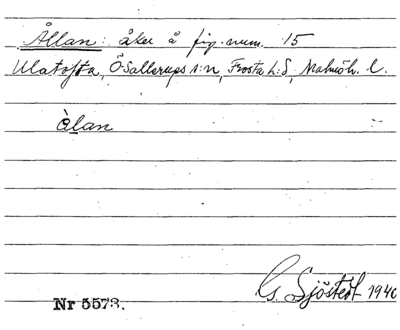 Ållan: åker å fig. num. 15
Ulatofta, Ö Sallerups s:n, Frosta h:d, Malmöh. l.
àlan
G. Sjöstedt 1940
Nr 5573.